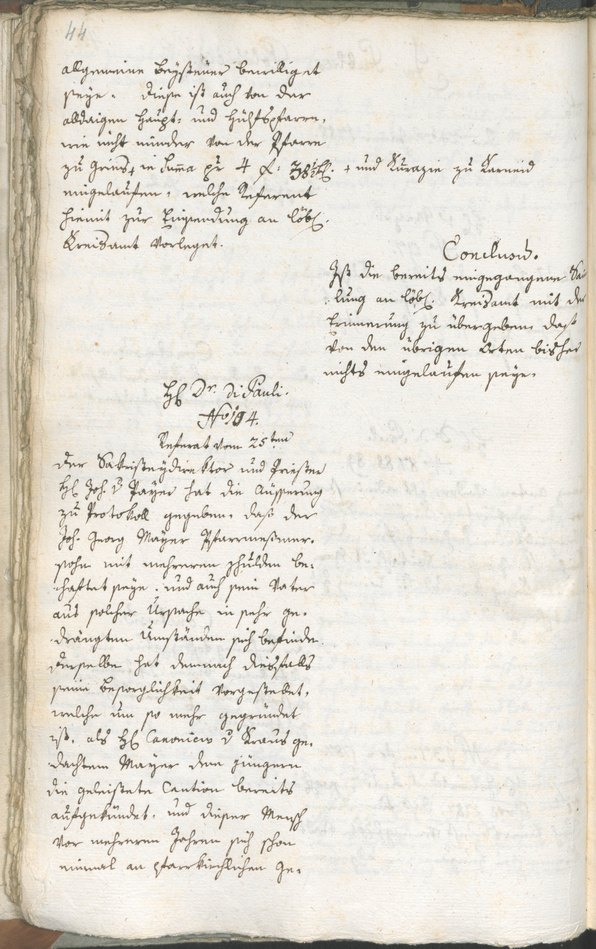 44
allgemeine Beysteuer bewilliget
seye. Diese ist auch von der
alldaigen Haupt- und Hilfspfarre,
wie nicht minder von der Pfarre
zu Gries, in Suma pr 4 f: 38 + und Kurazie zu Karneid
eingelaufen, welche Referent
hiemit zur Einsendung an löbl.
Kreisamt vorleget.
Conclusum.
Ist die bereits eingegangene Sam
lung an löbl. Kreisamt mit der
Erinnerung zu übergeben, daß
von den übrigen Orten bisher
nichts eingelaufen seye.
H Dr. Di Pauli.
No 194.
Referat vom 25ten
Der Sakristeydirektor und Priester
H Joh. v Payer hat die Äusserung
zu Protokoll gegeben, daß der
Joh. Georg Mayer Pfarrmeßner-
sohn mit mehreren Schulden be-
haftet seye, und auch sein Vater
aus solcher Ursache in sehr ge-
drängten Umständen sich befinde.
Derselbe hat demnach diesfalls
seine Besorglichkeit vorgestellet,
welche um so mehr gegründet
ist, als H Canonicus v Kraus ge-
dachtem Mayer dem jüngern
die geleistete Caution bereits
aufgekündet, und dieser Mensch
vor mehreren Jahren sich schon
einmal an pfarrkirchlichen Ge-